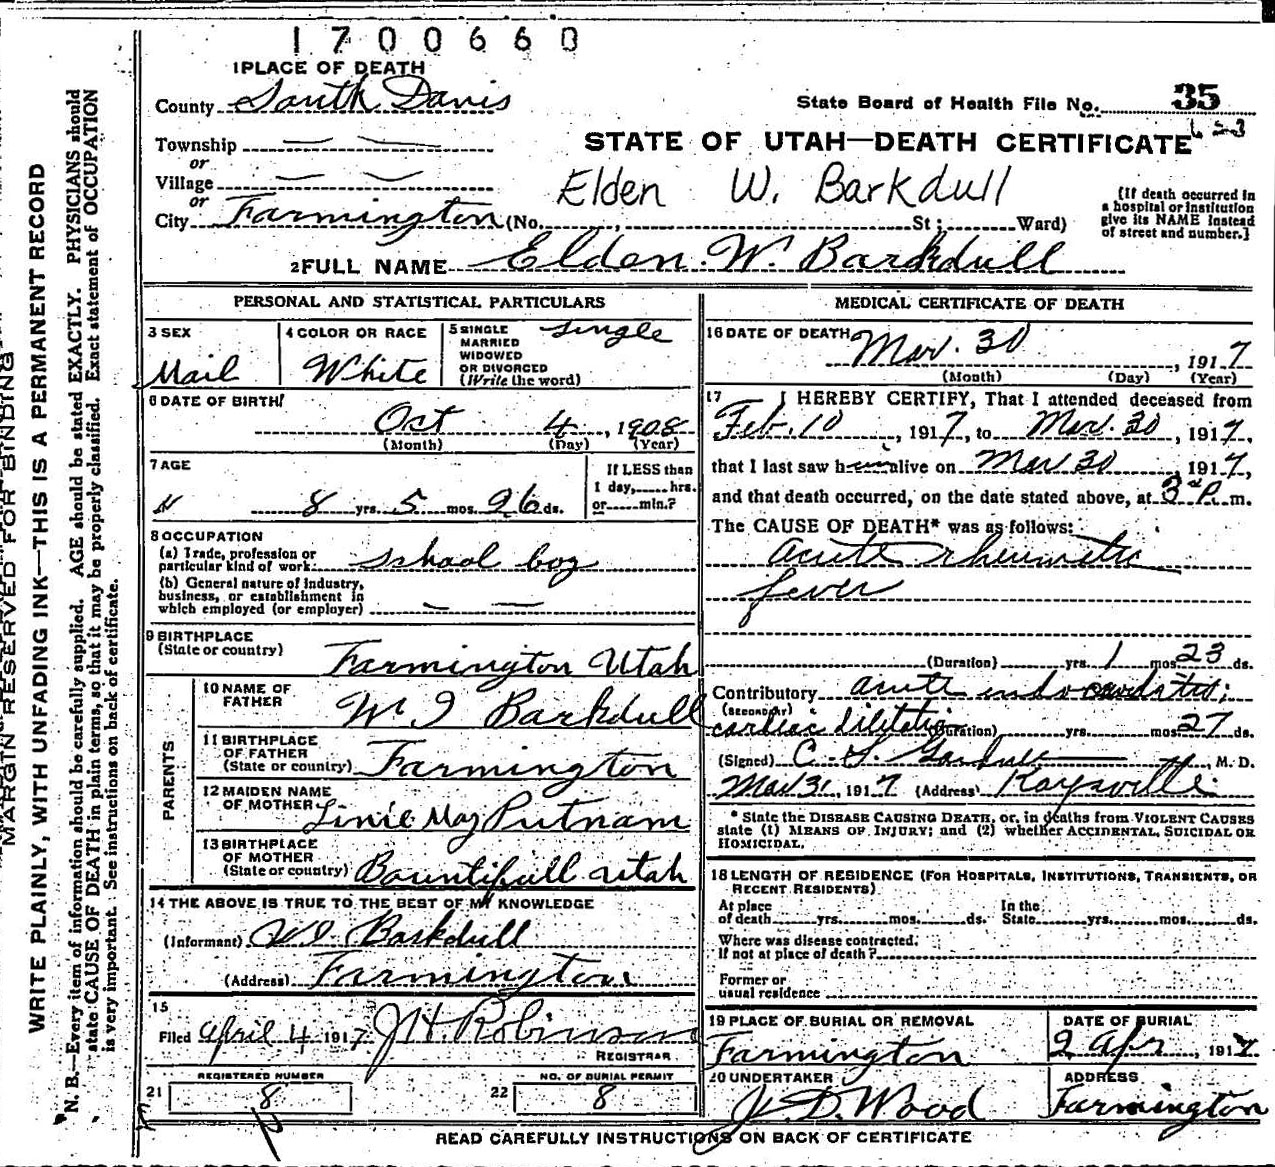 1700660
1 PLACE OF DEATH
County South Davis
State Board of Health File No. 35
Township — —
or
STATE OF UTAH—DEATH CERTIFICATE
Village — —
or
Elden W. Barkdull
City Farmington (No. , St; Ward)
(If death occurred in
a hospital or institution
give its NAME instead
of street and number.)
2 FULL NAME Elden W. Barkdull
PERSONAL AND STATISTICAL PARTICULARS
3 SEX
Mail
4 COLOR OR RACE
White
5 SINGLE
MARRIED
WIDOWED
OR DIVORCED
(Write the word)
single
6 DATE OF BIRTH
Oct 4, 1908
(Month) (Day) (Year)
7 AGE
8 yrs. 5 mos. 26 ds.
If LESS than
1 day, hrs.
or min.?
8 OCCUPATION
(a) Trade, profession or
particular kind of work: school boy
(b) General nature of industry,
business, or establishment in
which employed (or employer) — —
9 BIRTHPLACE
(State or country) Farmington Utah
PARENTS
10 NAME OF
FATHER W I Barkdull
11 BIRTHPLACE
OF FATHER
(State or country) Farmington
12 MAIDEN NAME
OF MOTHER Linie May Putnam
13 BIRTHPLACE
OF MOTHER
(State or country) Bountifull Utah
14 THE ABOVE IS TRUE TO THE BEST OF MY KNOWLEDGE
(Informant) W I Barkdull
(Address) Farmington
15
Filed April 4 1917 J H Robinson
REGISTRAR
REGISTERED NUMBER
21 8
NO. OF BURIAL PERMIT
22 8
MEDICAL CERTIFICATE OF DEATH
16 DATE OF DEATH Mar. 30, 1917
(Month) (Day) (Year)
17 I HEREBY CERTIFY, That I attended deceased from
Feb. 10, 1917, to Mar. 30, 1917,
that I last saw him alive on Mar 30, 1917,
and that death occurred, on the date stated above, at 3 P. m.
The CAUSE OF DEATH* was as follows:
acute rheumatic
fever
(Duration) yrs. 1 mos. 23 ds.
Contributory acute endocarditis;
(SECONDARY)
cardiac dilitation (Duration) yrs. mos. 27 ds.
(Signed) C. G. , M. D.
Mar 31, 1917 (Address) Kaysville
* State the DISEASE CAUSING DEATH, or, in deaths from VIOLENT CAUSES
state (1) MEANS OF INJURY; and (2) whether ACCIDENTAL, SUICIDAL OR
HOMICIDAL.
18 LENGTH OF RESIDENCE (FOR HOSPITALS, INSTITUTIONS, TRANSIENTS, OR
RECENT RESIDENTS)
At place In the
of death yrs. mos. ds. State yrs. mos. ds.
Where was disease contracted.
If not at place of death?
Former or
usual residence
19 PLACE OF BURIAL OR REMOVAL
Farmington
DATE OF BURIAL
2 Apr, 1917
20 UNDERTAKER
J. D. Wood
ADDRESS
Farmington
READ CAREFULLY INSTRUCTIONS ON BACK OF CERTIFICATE
MARGIN RESERVED FOR BINDING
WRITE PLAINLY, WITH UNFADING INK—THIS IS A PERMANENT RECORD
N. B.—Every item of information should be carefully supplied. AGE should be stated EXACTLY. PHYSICIANS should
state CAUSE OF DEATH in plain terms, so that it may be properly classified. Exact statement of OCCUPATION
is very important. See instructions on back of certificate.